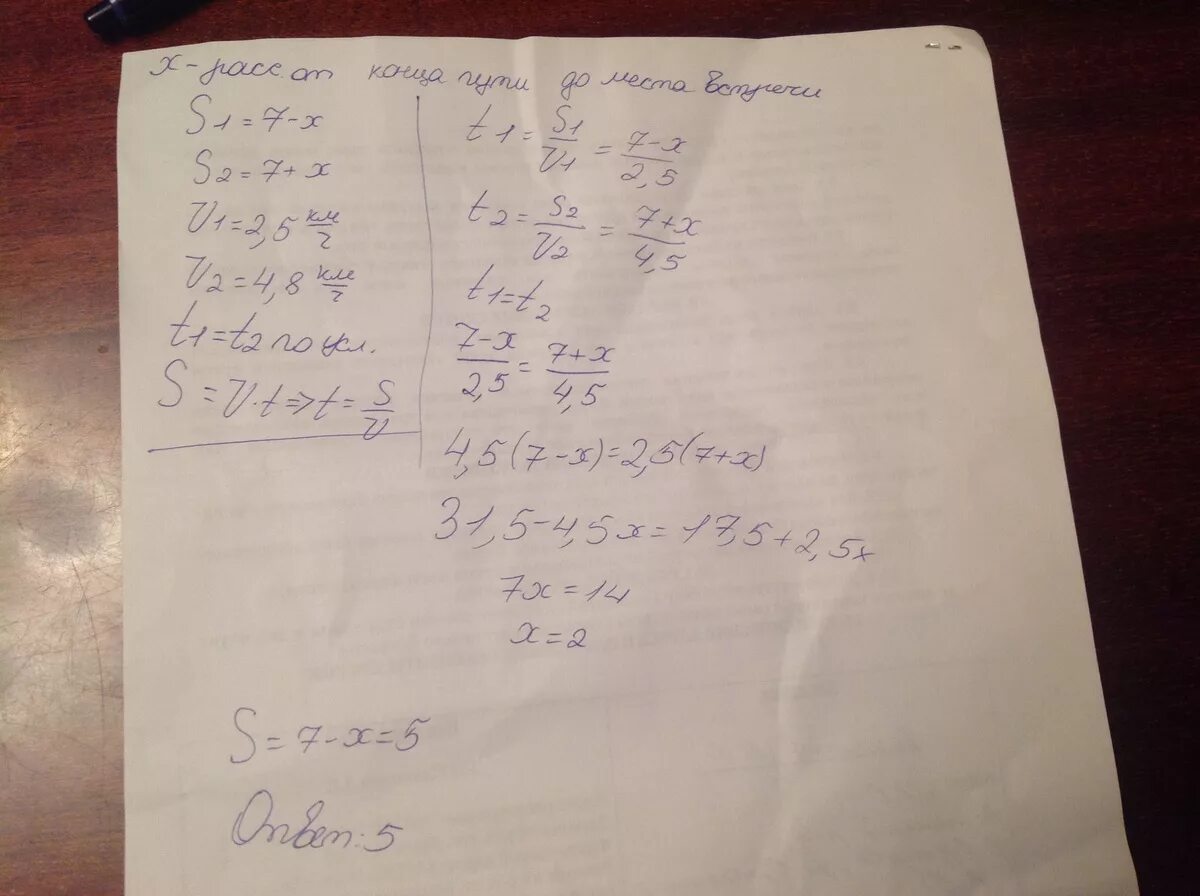 x - расс. от конца пути до места встречи
S1 = 7 - x
S2 = 7 + x
V1 = 2,5 км/ч
V2 = 4,8 км/ч
t1 = t2 по усл.
S = V · t => t = S/V
t1 = S1/V1 = 7-x/2,5
t2 = S2/V2 = 7+x/4,5
t1 = t2
7-x/2,5 = 7+x/4,5
4,5(7-x) = 2,5(7+x)
31,5 - 4,5x = 17,5 + 2,5x
7x = 14
x = 2
S = 7 - x = 5
Ответ: 5